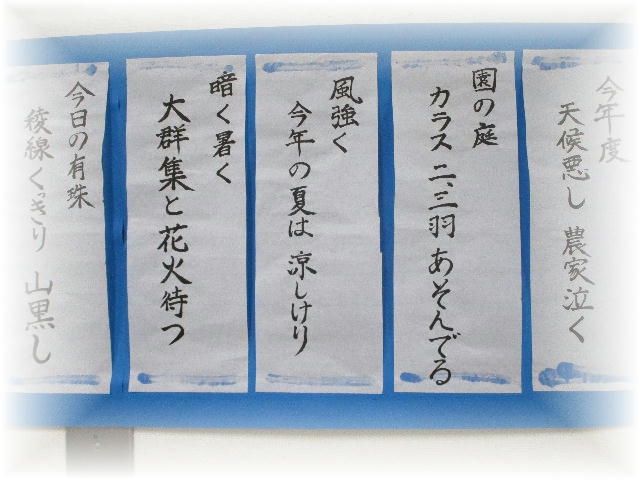 今年度
天候悪し 農家泣く
園の庭
カラス 二、三羽 あそんでる
風強く
今年の夏は 涼しけり
暗く暑く
大群集と花火待つ
今日の有珠
稜線くっきり 山黒し